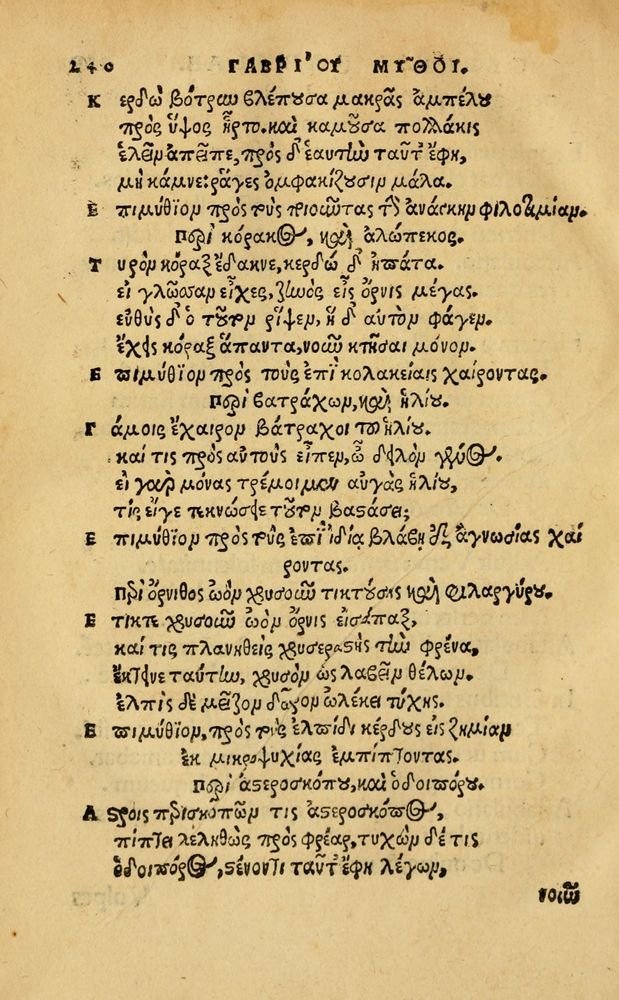 240 ΓΑΒΡΙΌΥ ΜΥ͂ΘΟΙ.
Κερδὼ βότρυν βλέπουσα μακρᾶς ἀμπέλου
πρὸς ὕψος ἦρτο. καὶ καμοῦσα πολλάκις
ἑλεῖν ἀπεῖπε, πρὸς δ' ἑαυτὴν ταῦτ' ἔφη,
μὴ κάμνε: ῥᾶγες ὀμφακίζουσιν μάλα.
Ἐπιμύθϊον πρὸς τοὺς ποιοῦντας τὴν ἀνάγκην φιλοτιμίαν.
Περὶ κόρακος, καὶ ἀλώπεκος.
Τυρὸν κόραξ ἔδακνε, κερδὼ δ' ἠπάτα.
εἰ γλῶσσαν εἶχες, ζηνὸς εἶς ὄρνις μέγας.
εὐθὺς δ' ὁ τοῦτον ῥίψεν, ἡ δ' αὐτὸν φάγεν.
ἔχεις κόραξ ἅπαντα, νοῦν κτῆσαι μόνον.
Ἐπιμύθϊον πρὸς τοὺς ἐπὶ κολακείαις χαίροντας.
Περὶ βατράχων, καὶ ἡλίου.
Γάμοις ἔχαιρον βάτραχοι τοῦ ἡλίου.
καί τις πρὸς αὐτοὺς εἶπεν, ὦ δειλὸν γένος.
εἰ γὰρ μόνας τρέμοιμεν αὐγὰς ἡλίου,
τίς εἴγε τεκνώσειε τοῦτον βαστάσει;
Ἐπιμύθϊον πρὸς τοὺς ἐπὶ ἰδίᾳ βλάβῃ δι' ἀγνωσίας χαί
ροντας.
Περὶ ὄρνιθος ὠὸν χρυσοῦν τικτούσης καὶ φιλαργύρου.
Ἔτικτε χρυσοῦν ὠὸν ὄρνις εἰσάπαξ,
καί τις πλανηθεὶς χρυσεραστὴς τὴν φρένα,
ἔκτεινε ταύτην, χρυσὸν ὡς λαβεῖν θέλων.
ἐλπὶς δὲ μεῖζον δῶρον ὠλέκει τύχης.
Ἐπιμύθϊον, πρὸς τοὺς ἐλπίδι κέρδους εἰς ζημίαν
ἐκ μικροψυχίας ἐμπίπτοντας.
Περὶ ἀστεροσκόπου, καὶ ὁδοιπόρου.
Ἄστροις περισκοπῶν τις ἀστεροσκόπος,
πίπτει λεληθὼς πρὸς φρέαρ, τυχὼν δέ τις
ὁδοιπόρος, στένοντι ταῦτ' ἔφη λέγων,